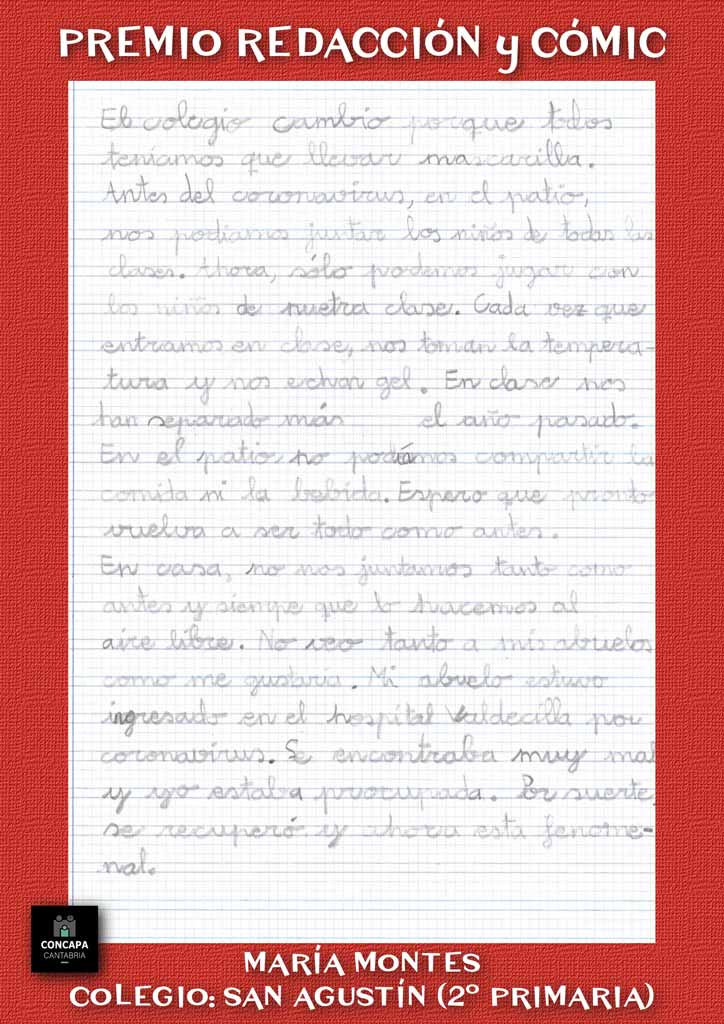 PREMIO REDACCIÓN y CÓMIC
El colegio cambio porque todos
teníamos que llevar mascarilla.
Antes del coronavirus, en el patio,
nos podiamos juntar los niños de todas las
clases. Ahora, sólo podemos jugar con
los niños de nuetra clase. Cada vez que
entramos en clase, nos toman la tempera-
tura y nos echan gel. En clase nos
han separado más el año pasado.
En el patio no podíamos compartir la
comida ni la bebida. Espero que pronto
vuelva a ser todo como antes.
En casa, no nos juntamos tanto como
antes y siempe que lo hacemos al
aire libre. No veo tanto a mis abuelos
como me gustaría. Mi abuelo estuvo
ingresado en el hospital Valdecilla por
coronavirus. Se encontraba muy mal
y yo estaba preocupada. Por suerte,
se recuperó y ahora está fenome-
nal.
CONCAPA
CANTABRIA
MARÍA MONTES
COLEGIO: SAN AGUSTÍN (2º PRIMARIA)